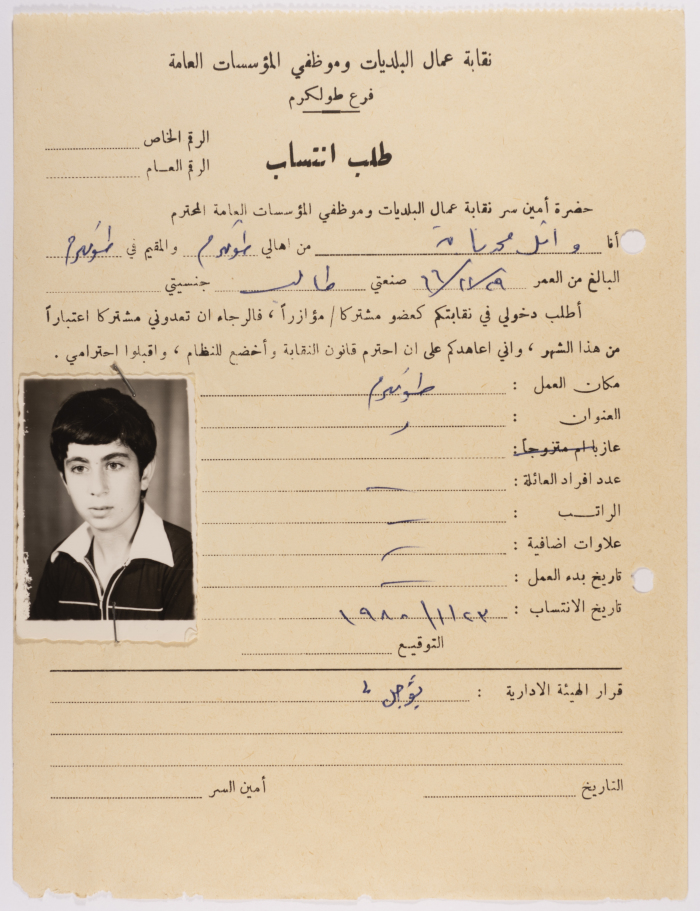 نقابة عمال البلديات وموظفي المؤسسات العامة
فرع طولكرم
الرقم الخاص
الرقم العام
طلب انتساب
حضرة أمين سر نقابة عمال البلديات وموظفي المؤسسات العامة المحترم
أنا وائل محمد من اهالي طولكرم والمقيم في طولكرم
البالغ من العمر صنعتي طالب جنسيتي
أطلب دخولي في نقابتكم كعضو مشتركا / مؤازراً ، فالرجاء ان تعدوني مشتركا اعتباراً
من هذا الشهر ، واني اعاهدكم على ان احترم قانون النقابة وأخضع للنظام ، واقبلوا احترامي .
مكان العمل : طولكرم
العنوان :
عازبا ام متزوجاً :
عدد افراد العائلة :
الراتب :
علاوات اضافية :
تاريخ بدء العمل :
تاريخ الانتساب : ٢٣/١/١٩٨٠
التوقيع
قرار الهيئة الادارية : يؤجل
التاريخ أمين السر